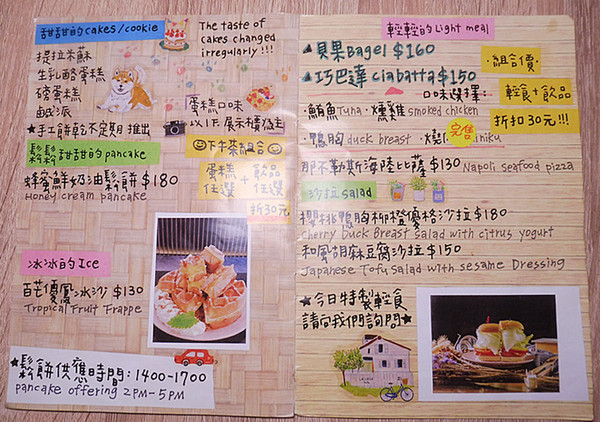 甜甜的cakes/cookie
The taste of
cakes changed
irregularly!!!
提拉米蘇
生乳酪蛋糕
磅蛋糕
鹹派
★手工餅乾不定期推出
蛋糕口味
以1F展示櫃為主
鬆鬆甜甜的pancake
蜂蜜鮮奶油鬆餅$180
Honey cream pancake
下午茶組合
蛋糕任選+飲品任選
折30元
冰冰的Ice
百芒優鳳冰沙$130
Tropical Fruit Frappe
★鬆餅供應時間:1400-1700
pancake offering 2PM-5PM
輕輕的Light meal
▲貝果Bagel $160
▲巧巴達Ciabatta $150
·組合價·
輕食+飲品
折扣30元!!!
口味選擇:
·鮪魚Tuna·燻雞smoked chicken
·鴨胸duck breast
完售
niku
那不勒斯海陸比薩$130 Napoli seafood pizza
沙拉Salad
櫻桃鴨胸柳橙優格沙拉$180
Cherry Duck Breast Salad with citrus yogurt
和風胡麻豆腐沙拉$150
Japanese Tofu Salad with sesame Dressing
★今日特製輕食
請向我們詢問★